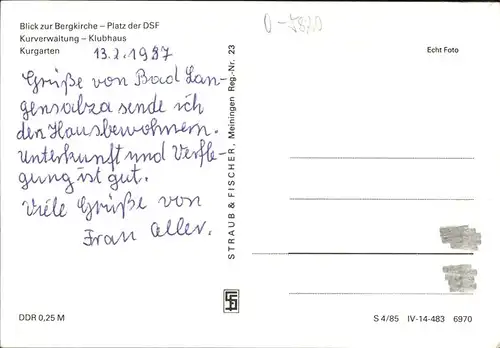 Blick zur Bergkirche – Platz der DSF
Kurverwaltung – Klubhaus
Kurgarten
13.2.1987
Grüße von Bad Lan-
gensalza sende ich
den Hausbewohnern.
Unterkunft und Verfle-
gung ist gut.
Viele Grüße von
Frau Aller.
DDR 0,25 M
STRAUB & FISCHER, Meiningen Reg.-Nr. 23
O-5820
Echt Foto
S 4/85 IV-14-483 6970